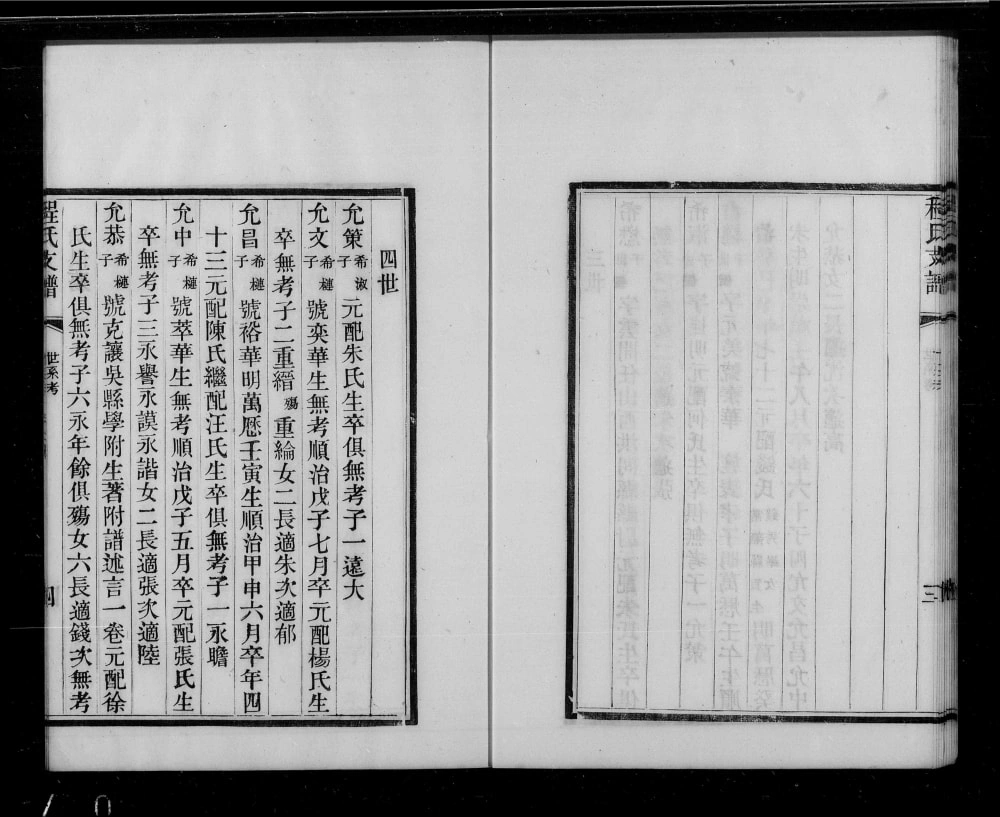 程氏支譜
三
四世
允策希淑子元配朱氏生卒俱無考子一遠大
允文希槤子號奕華生無考順治戊子七月卒元配楊氏生
卒無考子二重縉殤重綸女二長適朱次適郁
允昌希槤子號裕華明萬厯壬寅生順治甲申六月卒年四
十三元配陳氏繼配汪氏生卒俱無考子一永瞻
允中希槤子號萃華生無考順治戊子五月卒元配張氏生
卒無考子三永譽永謨永諧女二長適張次適陸
允恭希槤子號克讓吳縣學附生著附譜述言一卷元配徐
氏生卒俱無考子六永年餘俱殤女六長適錢次無考
程氏支譜
世系考
四